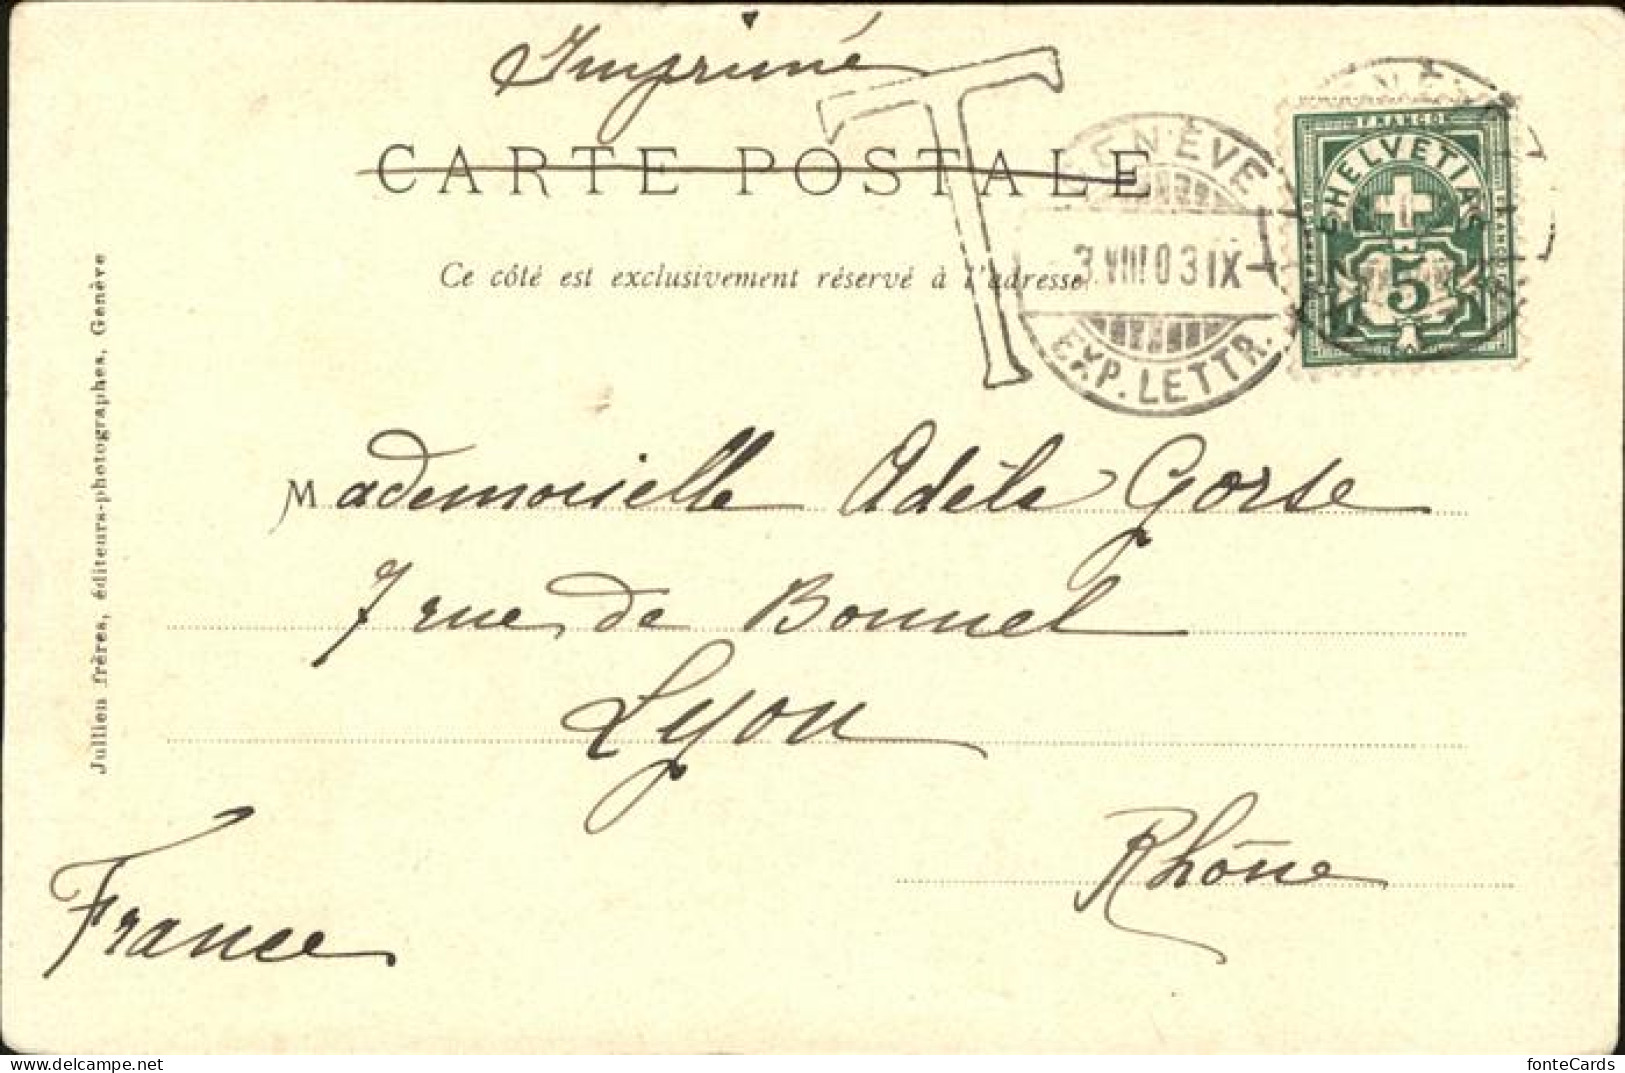 Imprimé
CARTE POSTALE
Ce côté est exclusivement réservé à l'adresse
T
GENÈVE
3.VIII.03 IX
EXP. LETTR.
FRANCO
HELVETIA
FRANCO
FRANCO
5
Mademoiselle Adèle Gorse
7 rue de Bonnel
Lyon
Rhône
France
Jullien frères, éditeurs-photographes, Genève
www.delcampe.net
fonteCards